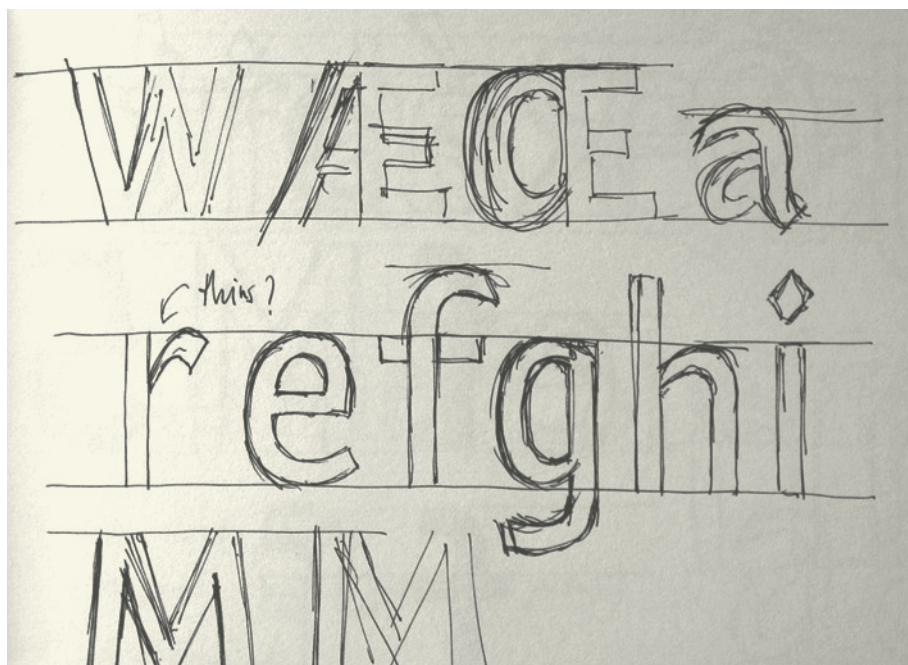 WÆŒa
this?
refghi
MM